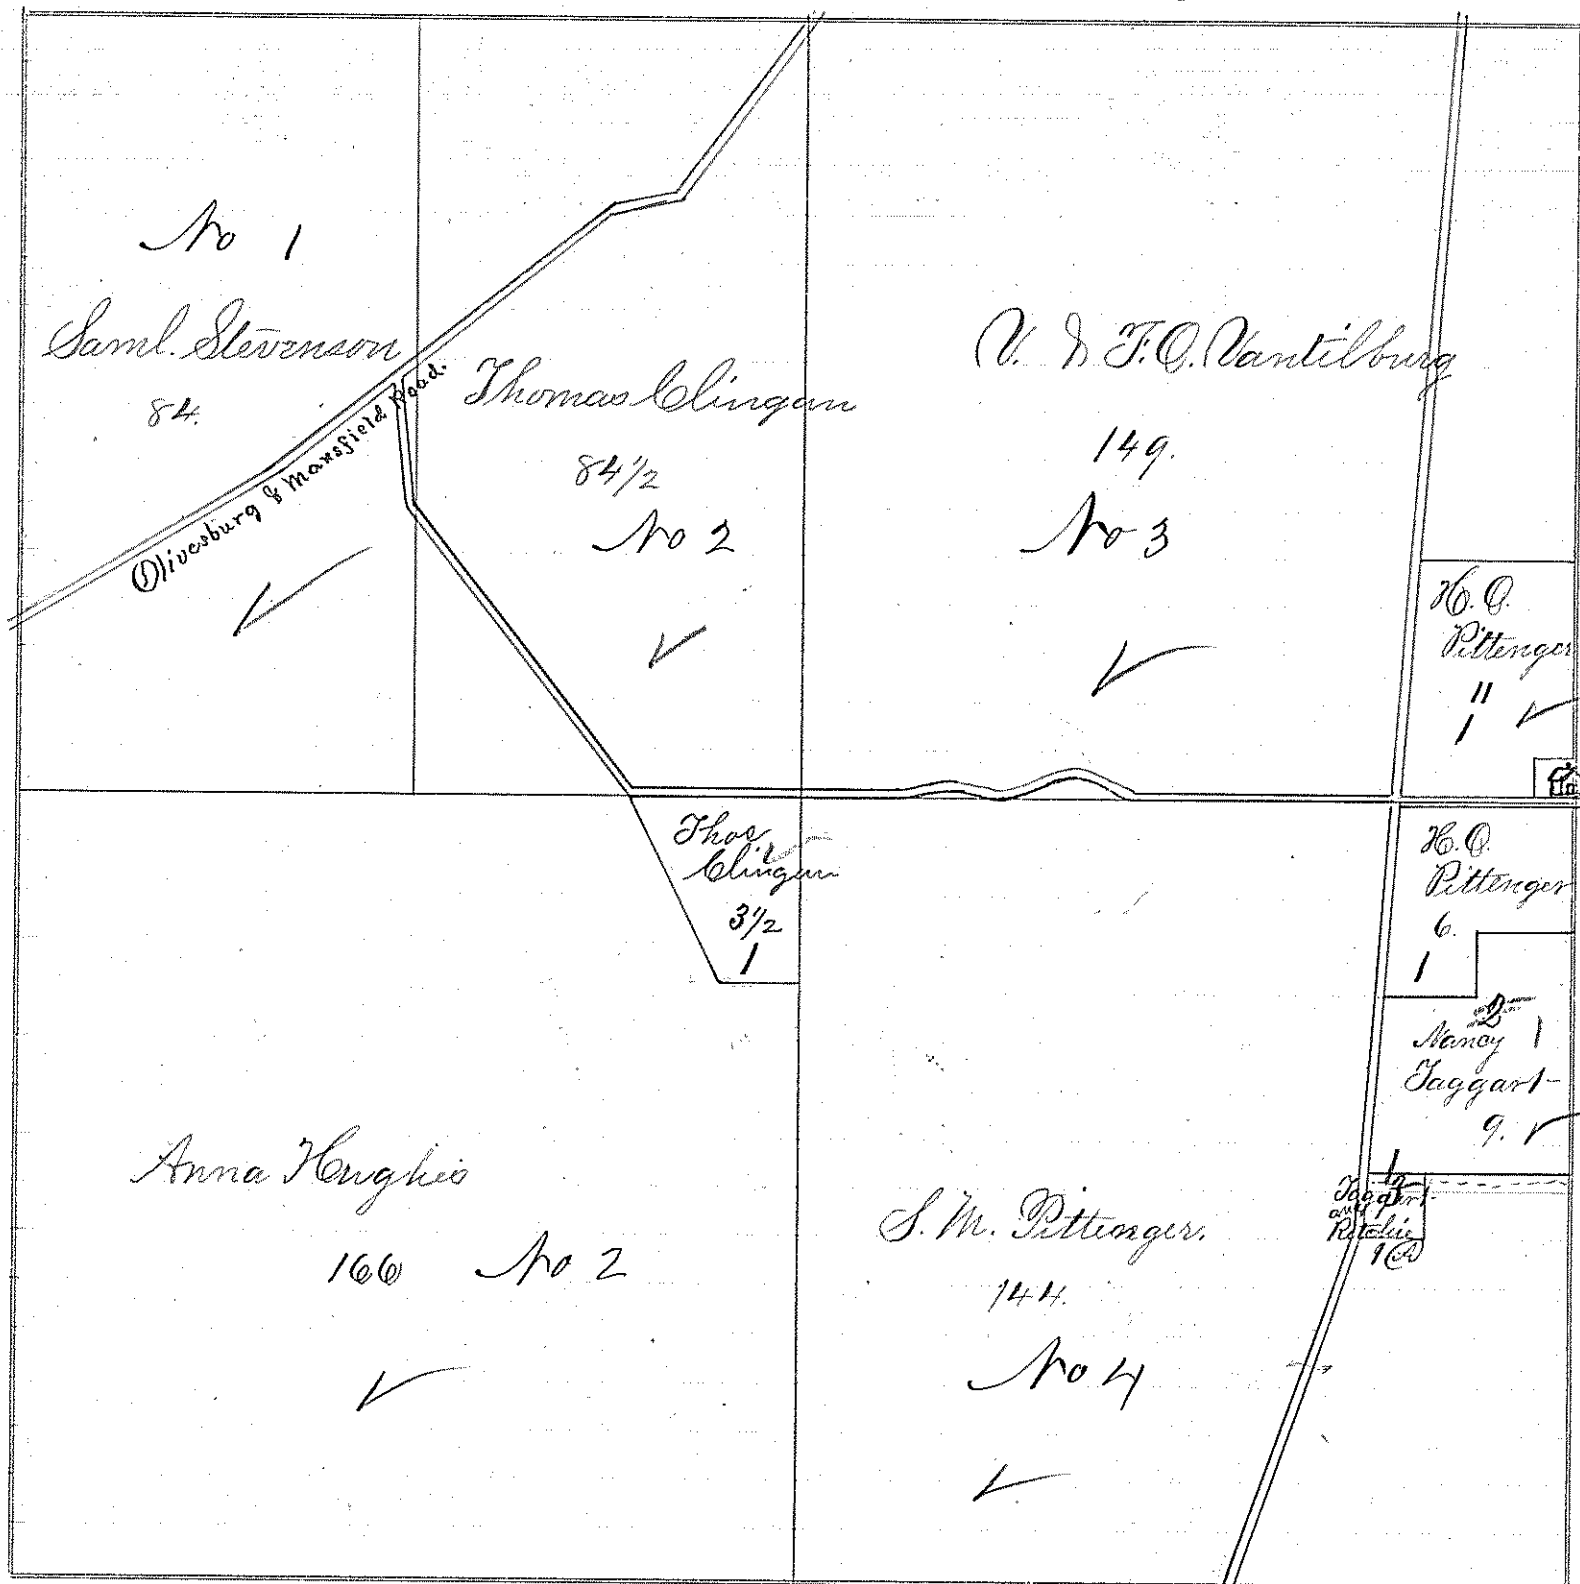 No 1
Saml. Stevenson
84.
Olivesburg & Mansfield Road.
Thomas Clingan
84 1/2
No 2
V. & F.O. Vantilburg
149.
No 3
H. O.
Pittenger
11
1
Thos
Clingan
3 1/2
1
H. O.
Pittenger
6.
1
2
Nancy 1
Taggart
9.
Anna Hughes
166 No 2
S. M. Pittenger.
144.
No 4
Taggart
and
Ritchie